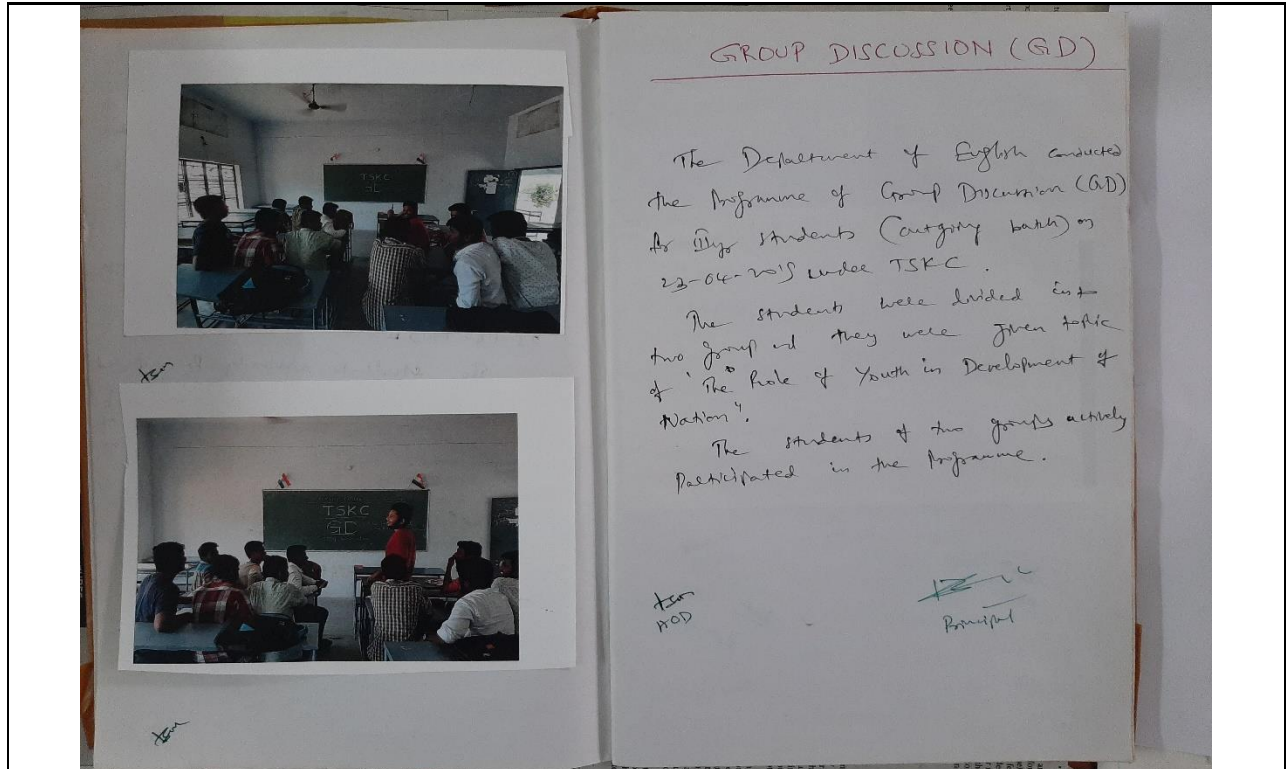 TSKC
GD
TSKC
GD
GROUP DISCUSSION (GD)
The Department of English conducted
the Programme of Group Discussion (GD)
for IIIyr students (outgoing batch) on
23-04-2019 under TSKC.
The students were divided into
two group and they were given topic
of "The Role of Youth in Development of
Nation".
The students of two groups actively
Participated in the Programme.
HOD
Principal